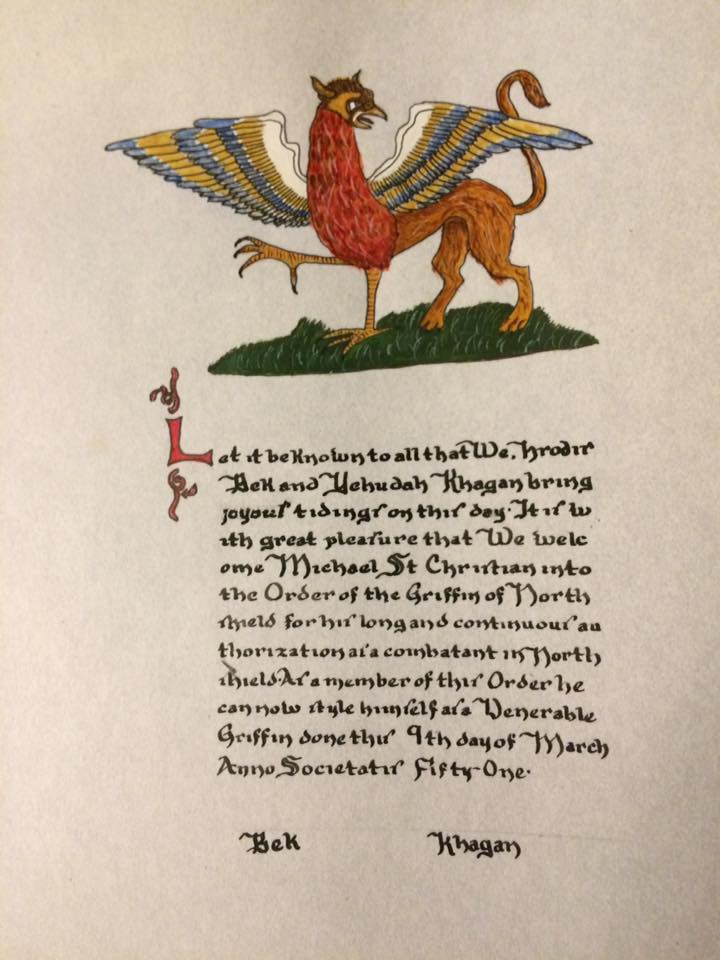 Let it be known to all that We, Hrodir
Bek and Yehudah Khagan bring
joyous tidings on this day. It is w
ith great pleasure that We welc
ome Michael St Christian into
the Order of the Griffin of North
shield for his long and continuous au
thorization as a combatant in North
shield. As a member of this Order he
can now style himself as a Venerable
Griffin done this 9th day of March
Anno Societatis Fifty-One.
Bek Khagan